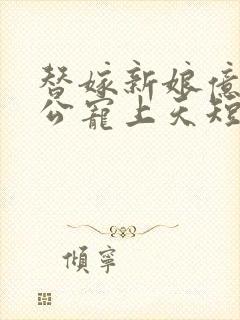 替嫁新娘億
公寵上天短
傾寧